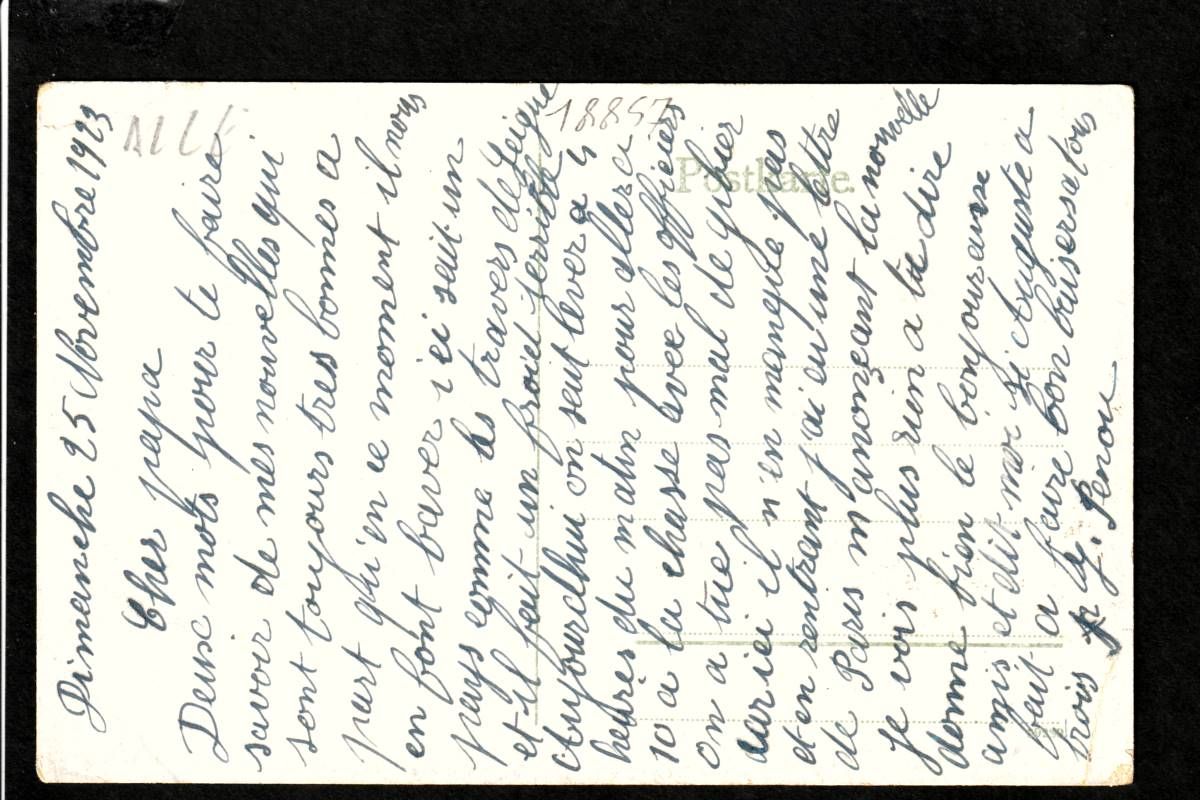 Dimanche 25 Novembre 1923
Cher papa
Deuse mots pour te faire
savoir de mes nouvelles qui
sont toujours tres bonnes a
part qu'en ce moment il nous
en font baver ici seut un
pays comme les travers de
et il fait un froid terrible
Aujourdhui on seut lever a 4
heures du matin pour aller a
10 a la chasse avec les officiers
on a tue pas mal de gibier
car ici il n'en manque pas
et en rentrant j'ai eu une lettre
de Paris m'anonçant la nouvelle
Je vois plus rien a te dire
donne bien le bonjour aux
amis et dit moi si Auguste a
fait a faire bon baisers a tous
G. Penou
Postkarte.
18857
ALLE